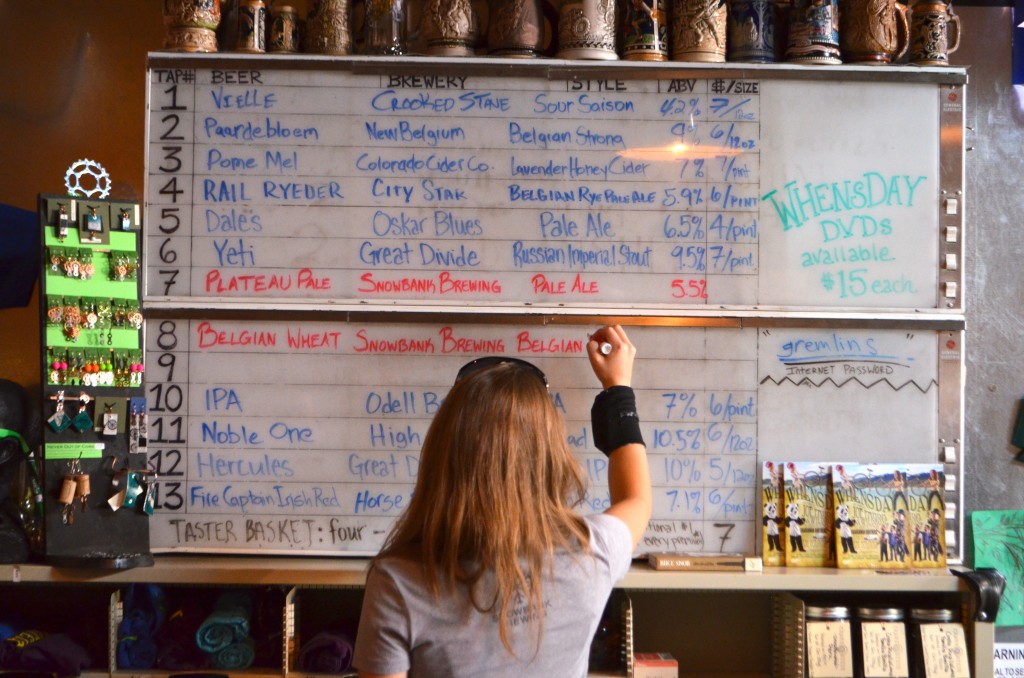 TAP# BEER BREWERY STYLE ABV $/SIZE
1 VIELLE CROOKED STAVE SOUR SAISON 4.2% 7/12oz
2 Paardebloem New Belgium Belgian Strong 9% 6/12oz
3 Pome Mel Colorado Cider Co. Lavender Honey Cider 7% 7/pint
4 RAIL RYEDER CITY STAR BELGIAN RYE PALE ALE 5.9% 6/PINT
5 Dale's Oskar Blues Pale Ale 6.5% 4/pint
6 Yeti Great Divide Russian Imperial Stout 9.5% 7/pint
7 PLATEAU PALE SNOWBANK BREWING PALE ALE 5.5%
WHENSDAY
DVDs
available.
$15 each.
8 BELGIAN WHEAT SNOWBANK BREWING BELGIAN
9
10 IPA Odell 7% 6/pint
11 Noble One High 10.5% 6/12oz
12 Hercules Great IP 10% 5/12oz
13 Fire Captain Irish Red Horse 7.1% 6/pint
TASTER BASKET: four - 7
every premium
"gremlins"
INTERNET PASSWORD
WHENSDAY
SNOWBANK
BREWING
ARNING